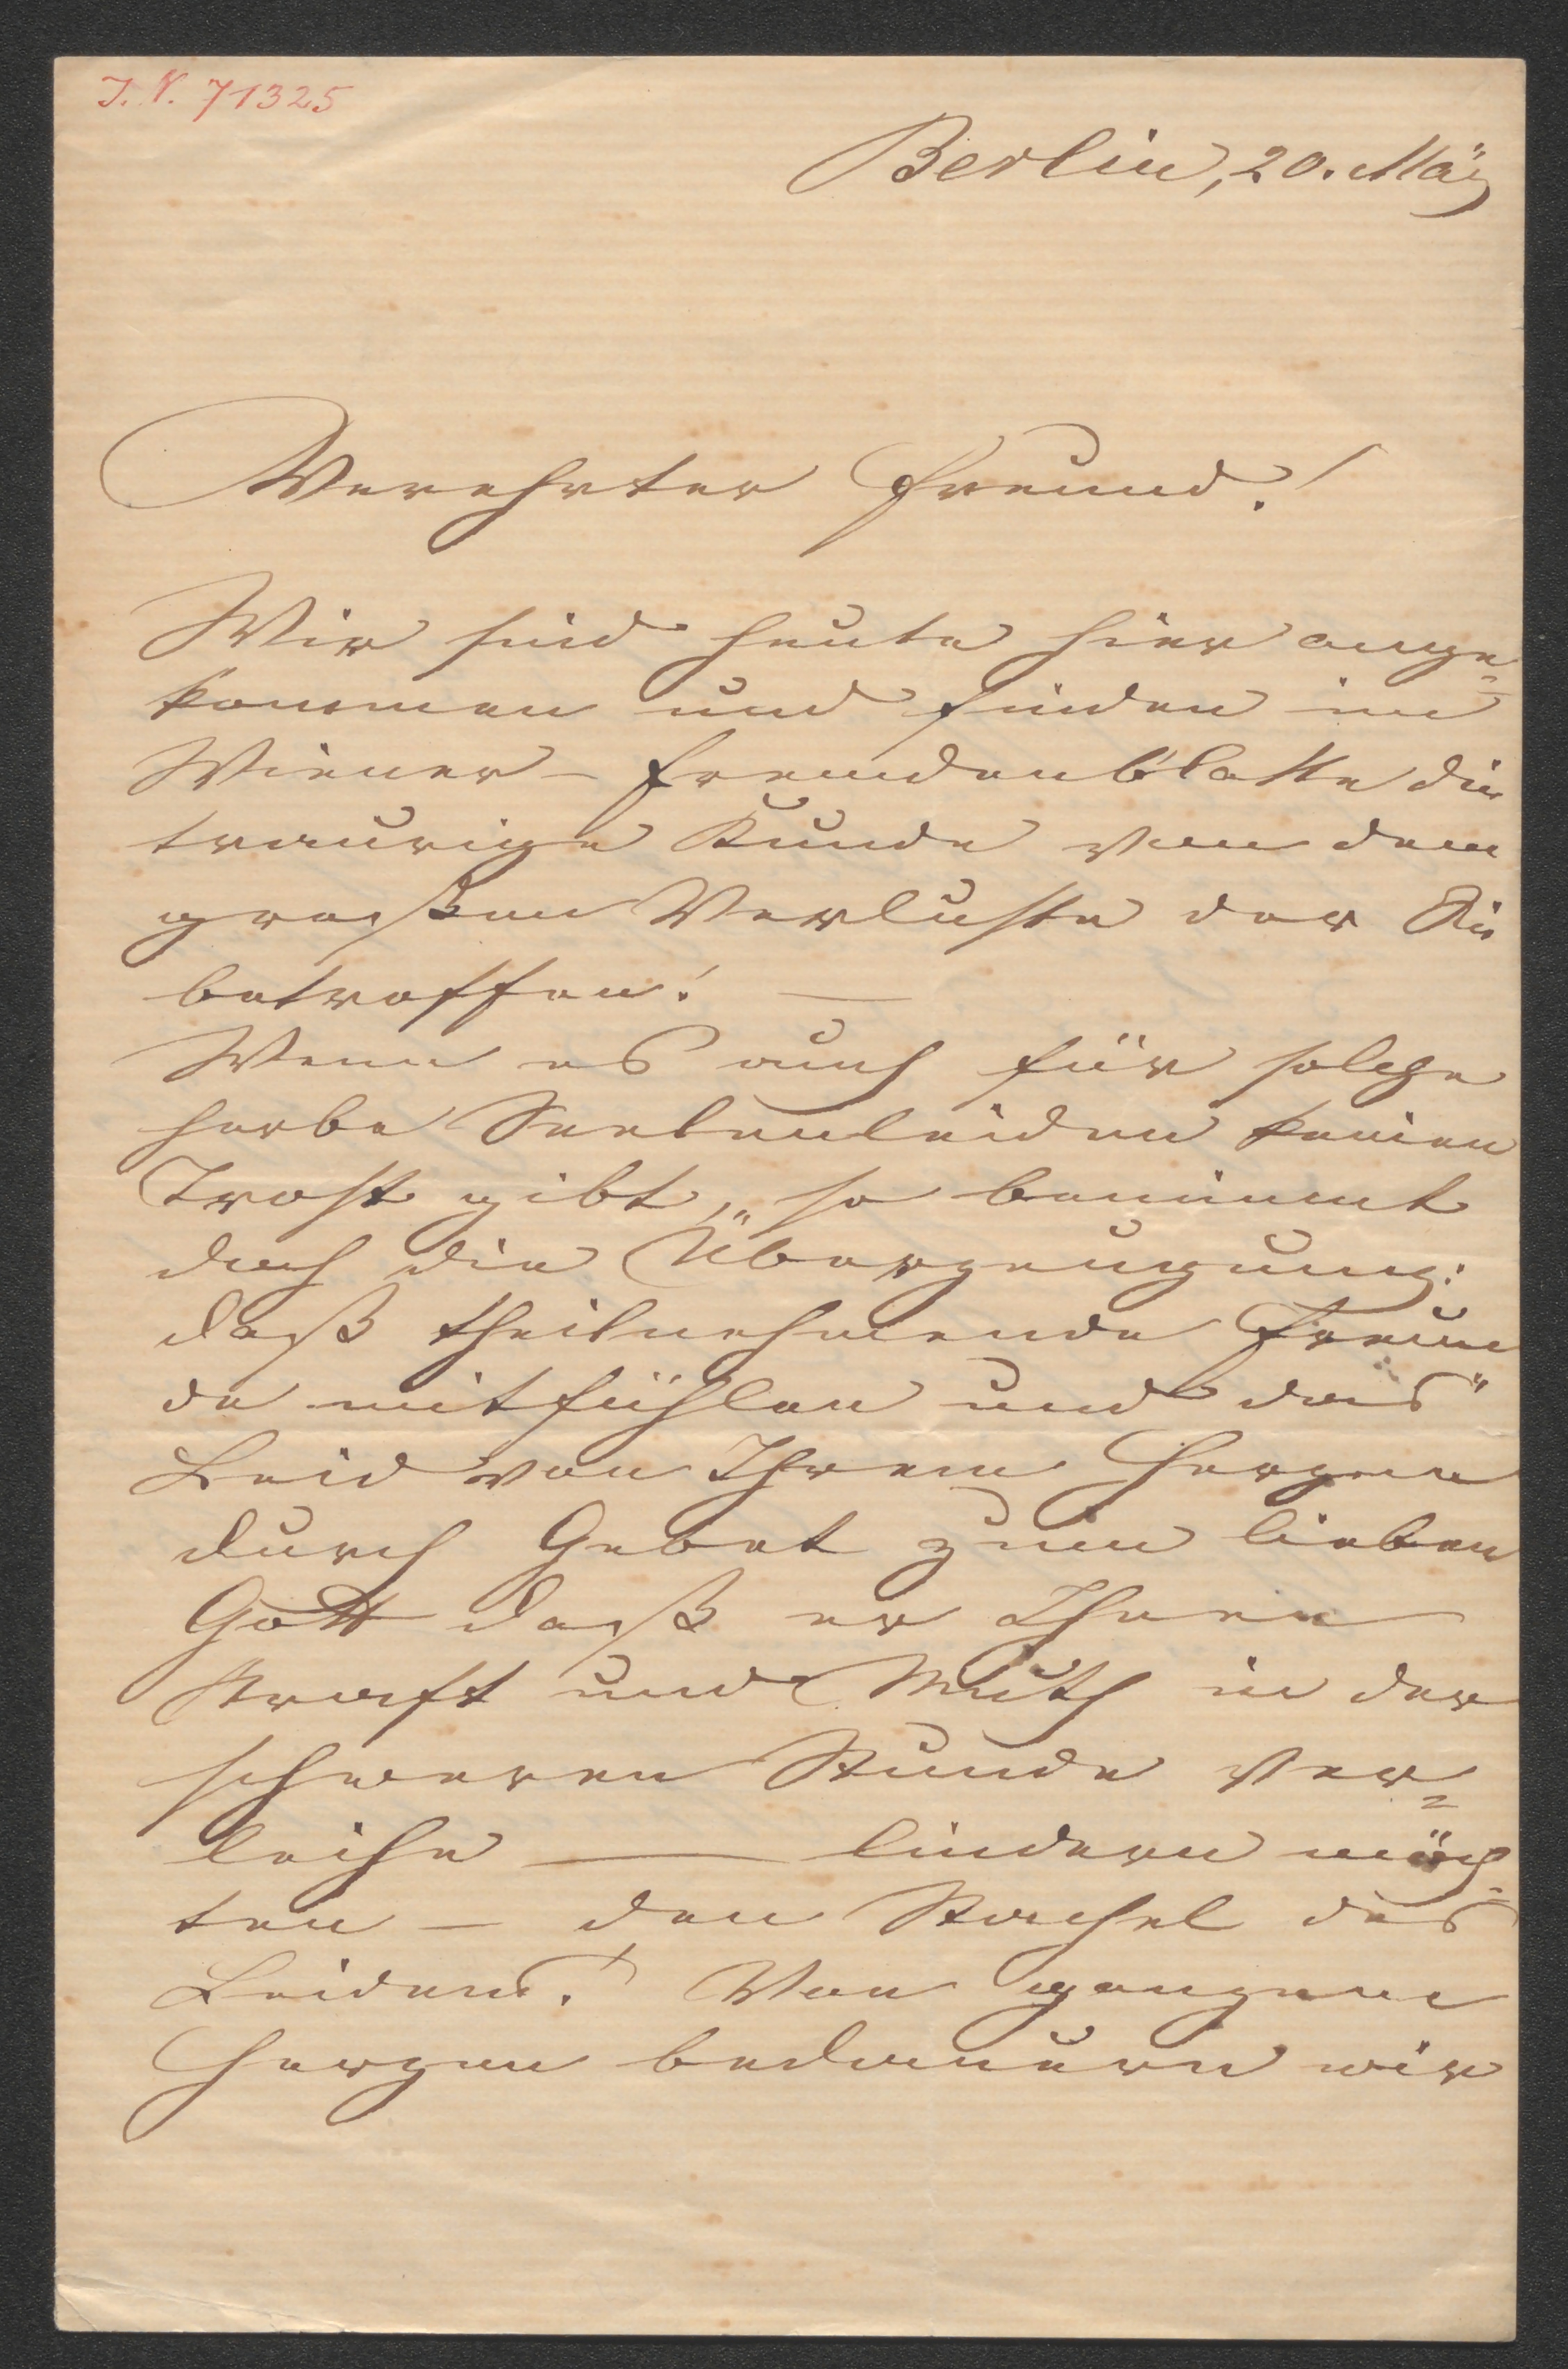 I. N. 71325
Berlin, 20. März
Verehrter Freund!
Wir sind heute hier ange=
kommen und finden im
Wiener-Fremdenblatte die
traurige Kunde von dem
großen Verluste der Sie
betroffen! —
Wenn es auch für solche
herbe Seelenleiden keinen
Trost gibt, so benimmt
doch die Überzeugung:
daß theilnehmende Freun
de mitfühlen und das"
Leid von Ihrem Herzen
durch Gebet zum lieben
Gott daß er Ihnen
Kraft und Muth in der
schweren Stunde ver=
leihe — lindern möch=
ten — den Stachel des
Leidens! Von ganzem
Herzen bedauern wir